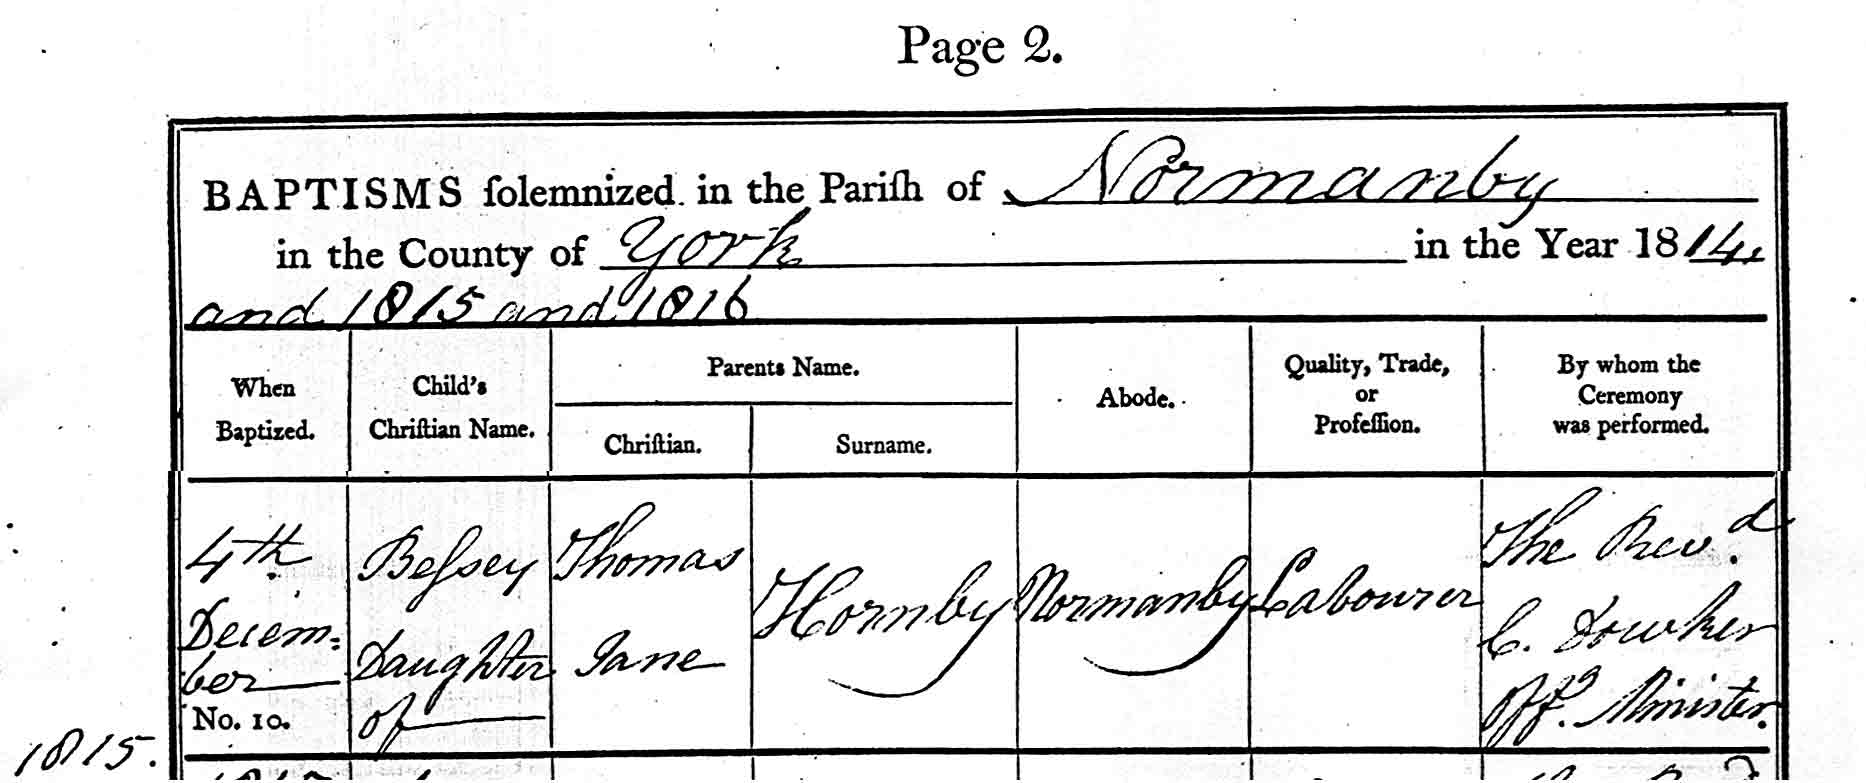 Page 2.
BAPTISMS ſolemnized in the Pariſh of Normanby
in the County of York in the Year 1814,
and 1815 and 1816
When Baptized.
Child's Chriſtian Name.
Parents Name.
Chriſtian.
Surname.
Abode.
Quality, Trade, or Profeſſion.
By whom the Ceremony was performed.
4th.
Decem:
ber
No. 10.
Beſsey
Daughter
of
Thomas
Jane
Hornby
Normanby
Labourer
The Revd.
C. Dowker
Offg. Minister.
1815.